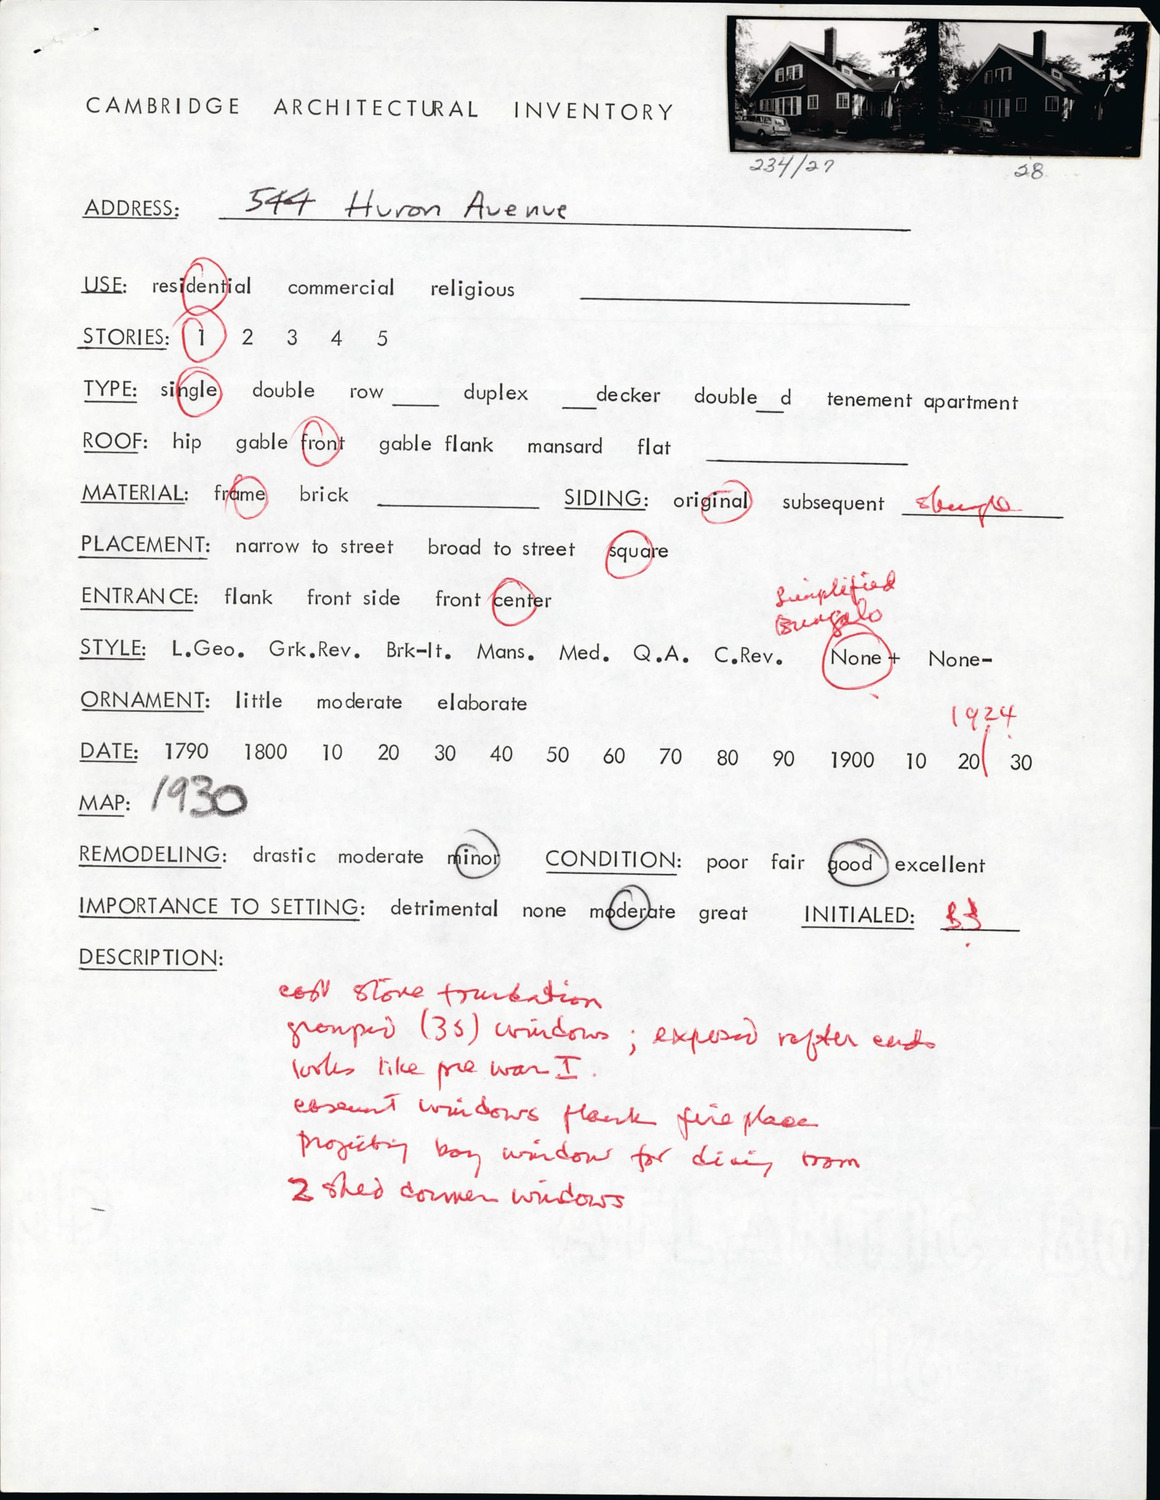 CAMBRIDGE ARCHITECTURAL INVENTORY
234/27 28
ADDRESS: 544 Huron Avenue
USE: residential commercial religious
STORIES: 1 2 3 4 5
TYPE: single double row ___ duplex ___decker double__d tenement apartment
ROOF: hip gable front gable flank mansard flat
MATERIAL: frame brick SIDING: original subsequent shingle
PLACEMENT: narrow to street broad to street square
ENTRANCE: flank front side front center
Simplified
Bungalo
STYLE: L.Geo. Grk.Rev. Brk-It. Mans. Med. Q.A. C.Rev. None+ None-
ORNAMENT: little moderate elaborate
1924
DATE: 1790 1800 10 20 30 40 50 60 70 80 90 1900 10 20 30
MAP: 1930
REMODELING: drastic moderate minor CONDITION: poor fair good excellent
IMPORTANCE TO SETTING: detrimental none moderate great INITIALED:
DESCRIPTION:
cast stone foundation
grouped (3s) windows ; exposed rafter ends
looks like pre war I.
casement windows flank fireplace
projecting bay window for dining room
2 shed dormer windows